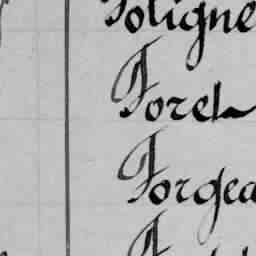 Foligne
Forel
Forgea